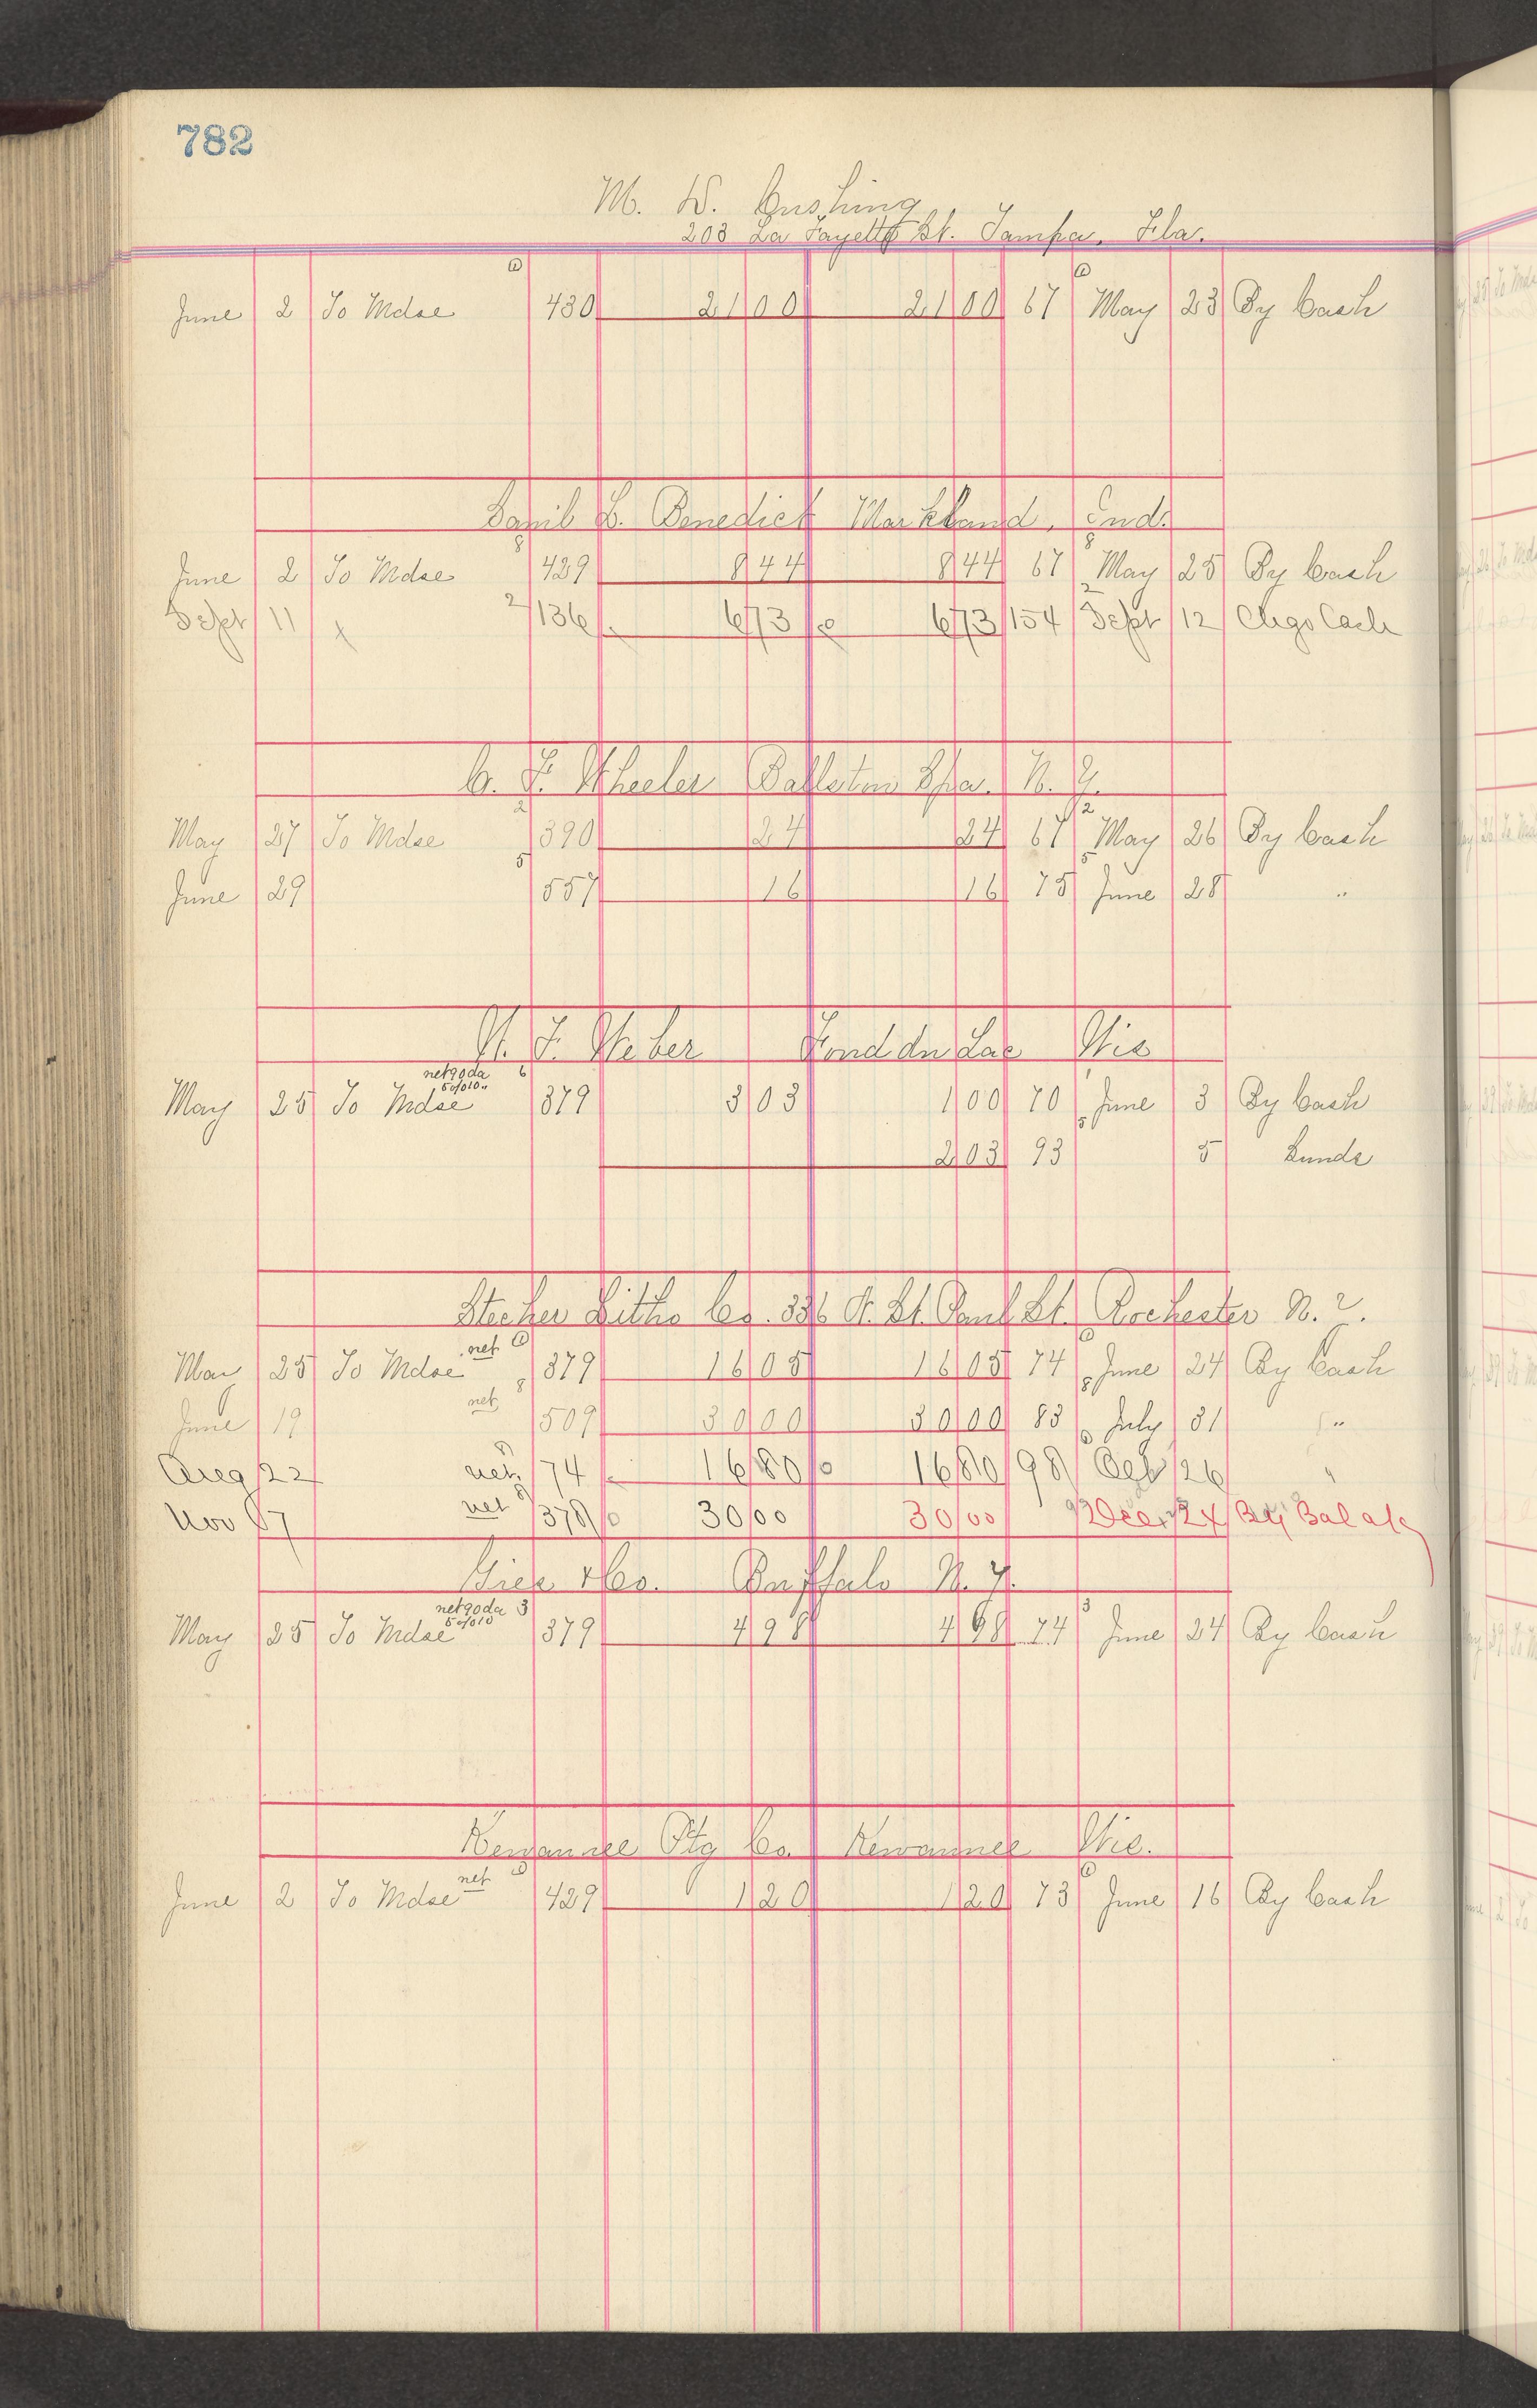 782
M. W. Cushing
208 La Fayette St. Tampa, Fla.
June 2 To Mdse 430 21 00 21 00 67 May 23 By Cash
Benedict Markland, Ind.
June 2 To Mdse 429 8 44 8 44 67 May 25 By Cash
Sept 11 136 6 73 6 73 154 Sept 12 Chgo Cash
C. F. Wheeler Ballston Spa. N. Y.
May 27 To Mdse 390 24 24 67 May 26 By Cash
June 29 557 16 16 75 June 28 "
Weber Fond du Lac Wis
net 90 da
May 25 To Mdse 379 3 03 1 00 70 June 3 By Cash
2 03 93 5 Sunds
Stecher Litho Co. St. Paul St. Rochester N. Y.
May 25 To Mdse net 379 16 05 16 05 74 June 24 By Cash
June 19 net 509 30 00 30 00 83 July 31 "
Aug 22 net 74 16 80 16 80 98 26 "
Nov 7 net 378 30 00 30 00 Dec 24 By Bal
Gies & Co. Buffalo N. Y.
net 90 da 3
May 25 To Mdse 379 4 98 4 98 74 June 24 By Cash
Kewaunee Ptg Co. Kewaunee Wis.
June 2 To Mdse net 429 1 20 1 20 73 June 16 By Cash